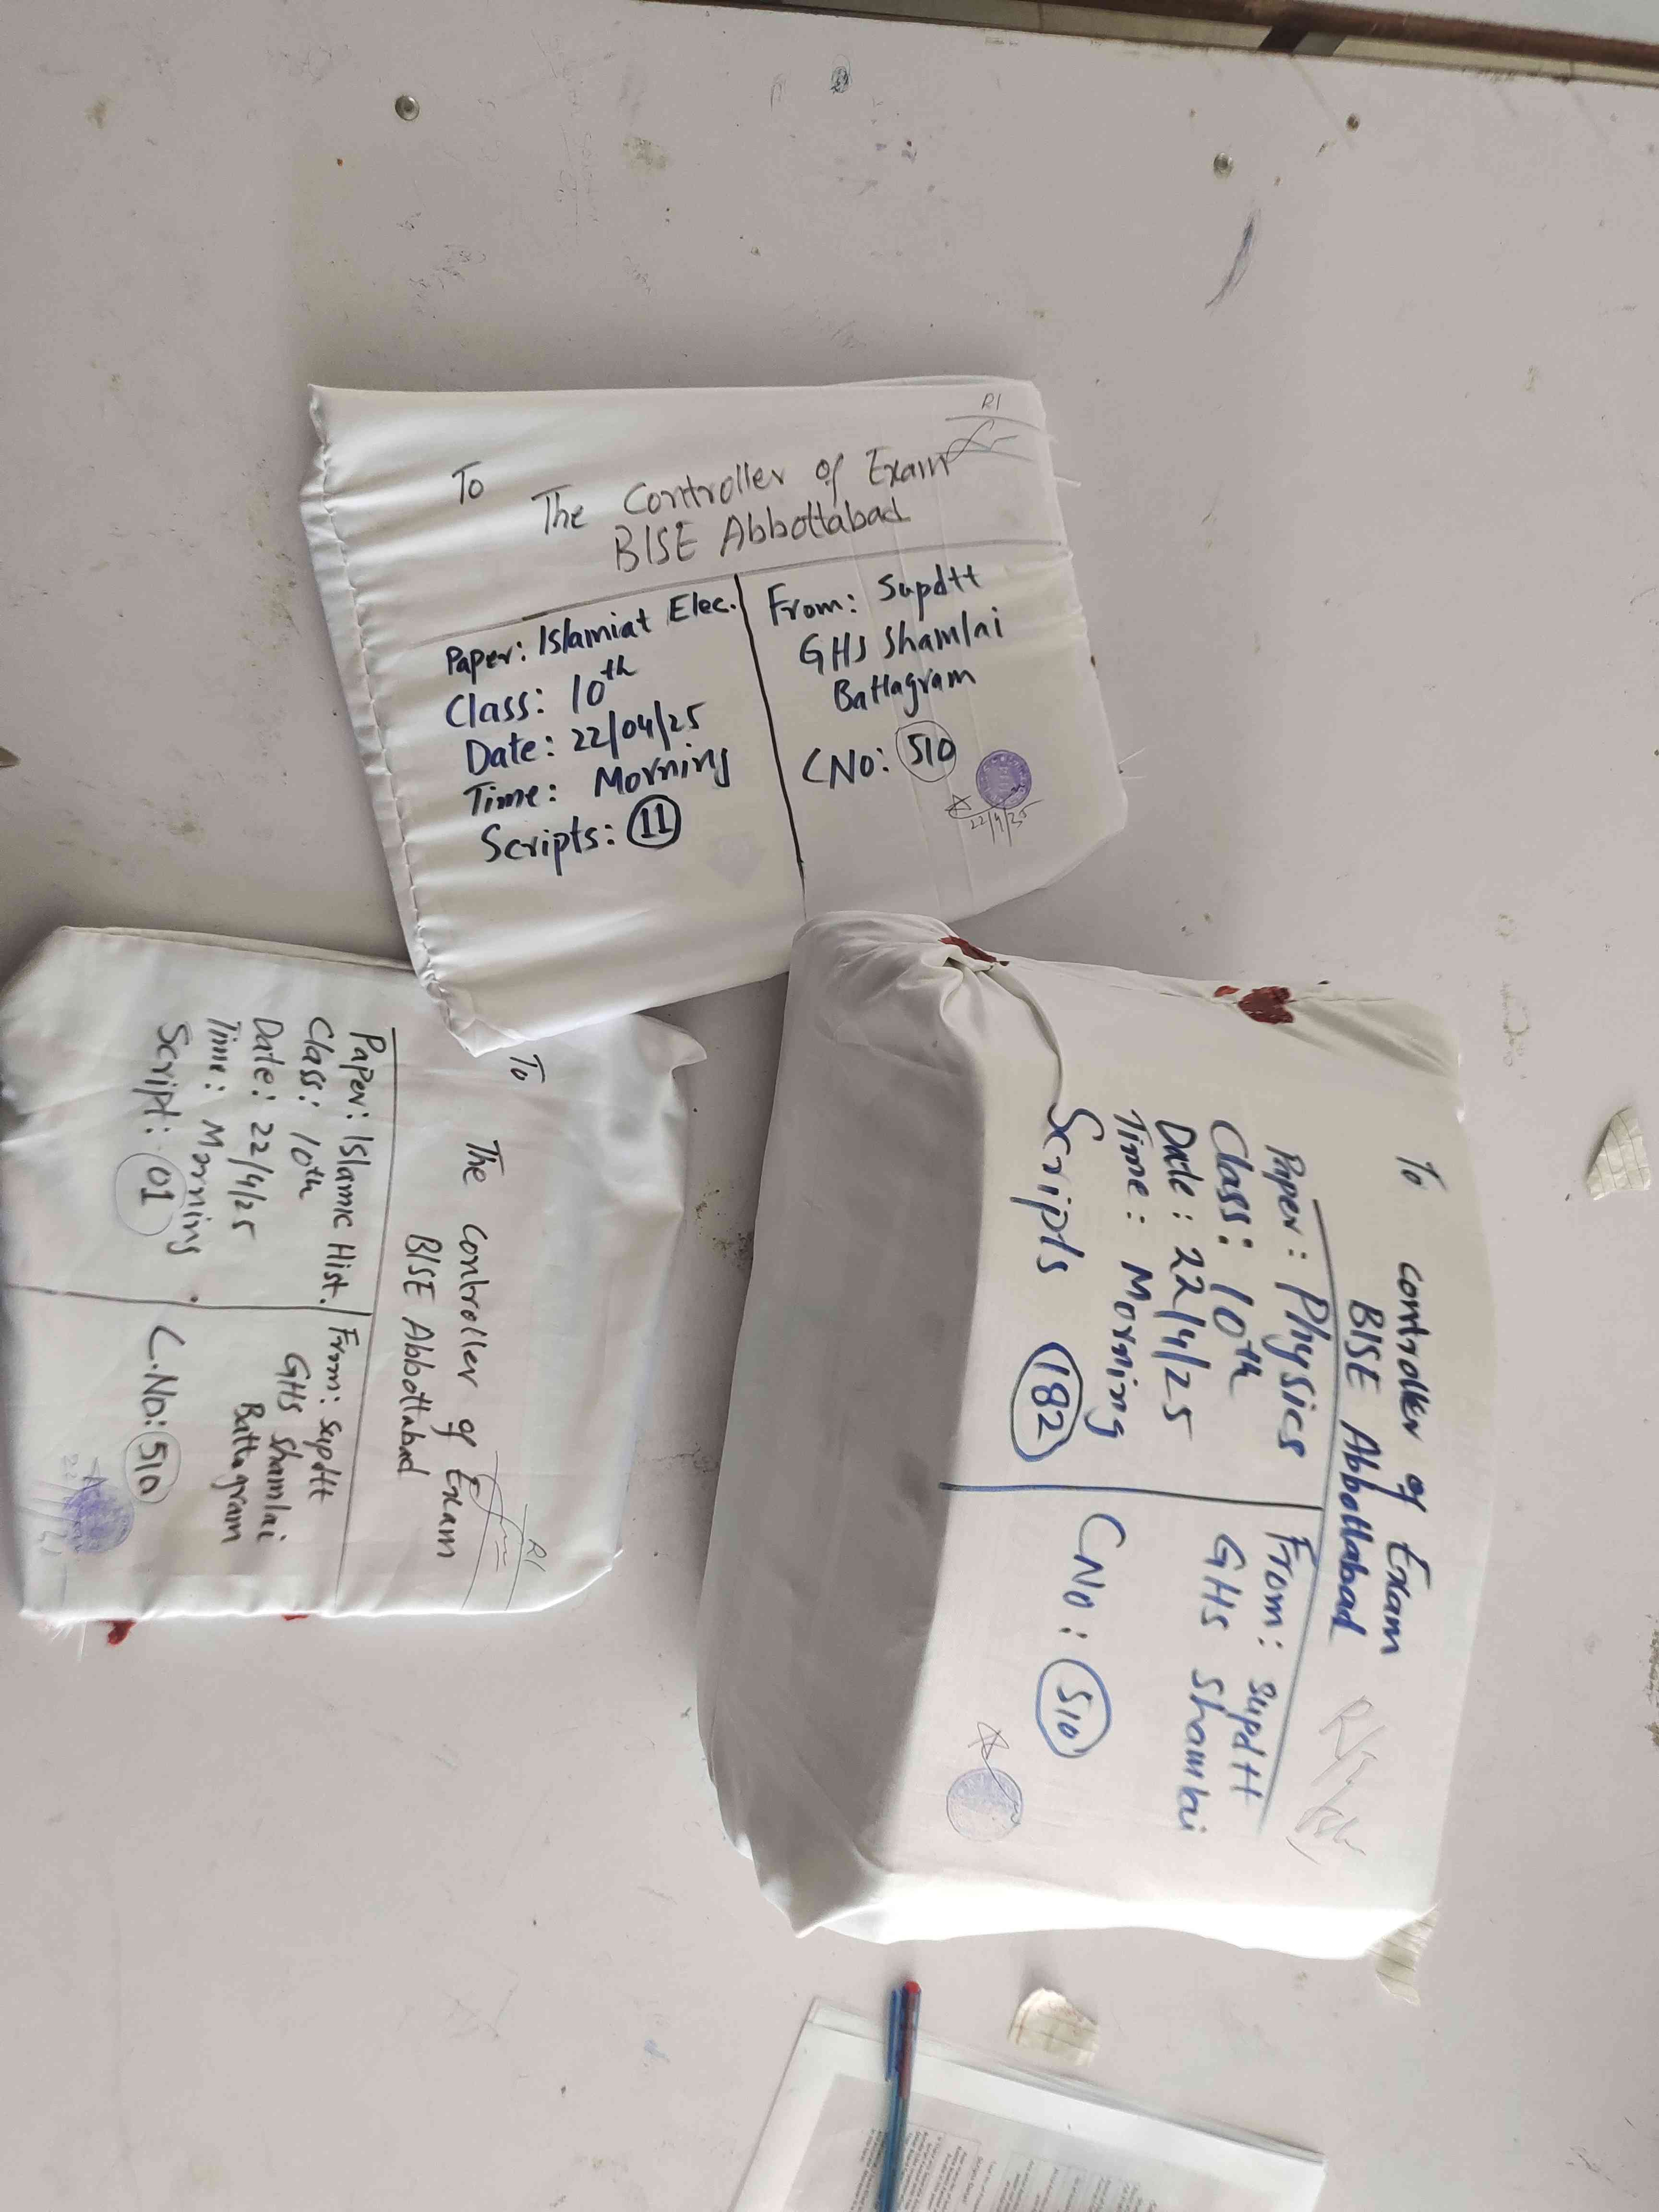 R1
To
The Controller of Exam
BISE Abbottabad
Paper: Islamiat Elec.
Class: 10th
Date: 22/04/25
Time: Morning
Scripts: 11
From: Supdtt
GHS Shamlai
Battagram
CNo: 510
22/4/25
To
Controller of Exam
BISE Abbottabad
Paper: Physics
Class: 10th
Date: 22/4/25
Time: Morning
Scripts 182
From: Supdtt
GHS Shamlai
CNo: 510
To
The Controller of Exam
BISE Abbottabad
R1
Paper: Islamic Hist.
Class: 10th
Date: 22/4/25
Time: Morning
Script: 01
From: Supdtt
GHS Shamlai
Battagram
C.No: 510